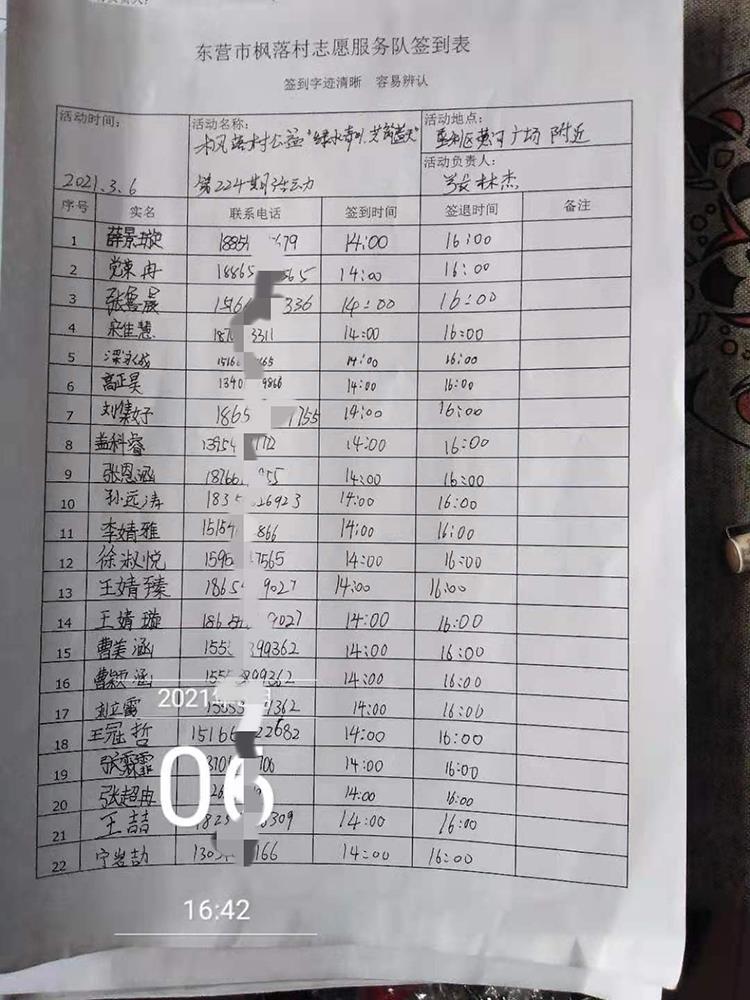 东营市枫落村志愿服务队签到表
签到字迹清晰 容易辨认
活动时间： 活动名称： 活动地点：
枫落村公益"绿水青山, 蓝天" 垦利区黄河广场 附近
活动负责人：
2021.3.6 第224期活动 林杰
序号 实名 联系电话 签到时间 签退时间 备注
1 薛景璇 1885 79 14:00 16:00
2 党荣冉 18865 65 14:00 16:00
3 张鲁晨 336 14:00 16:00
4 宋佳慧 187 3311 14:00 16:00
5 梁 1516 65 14:00 16:00
6 高正昊 1340 9866 14:00 16:00
7 刘 好 1865 1755 14:00 16:00
8 盖科睿 13954 14:00 16:00
9 张恩涵 18766 55 14:00 16:00
10 孙远涛 1835 26923 14:00 16:00
11 李婧雅 15154 866 14:00 16:00
12 徐淑悦 1595 7565 14:00 16:00
13 王婧臻 1865 9027 14:00 16:00
14 王婧璇 186 9027 14:00 16:00
15 曹美涵 155 399362 14:00 16:00
16 曹颖涵 1555 399362 14:00 16:00
2021
17 刘立霞 1555 9362 14:00 16:00
18 王冠哲 15166 22682 14:00 16:00
06
19 张霖霏 706 14:00 16:00
20 张超冉 14:00 16:00
21 王喆 182 309 14:00 16:00
22 宁岩劼 130 166 14:00 16:00
16:42